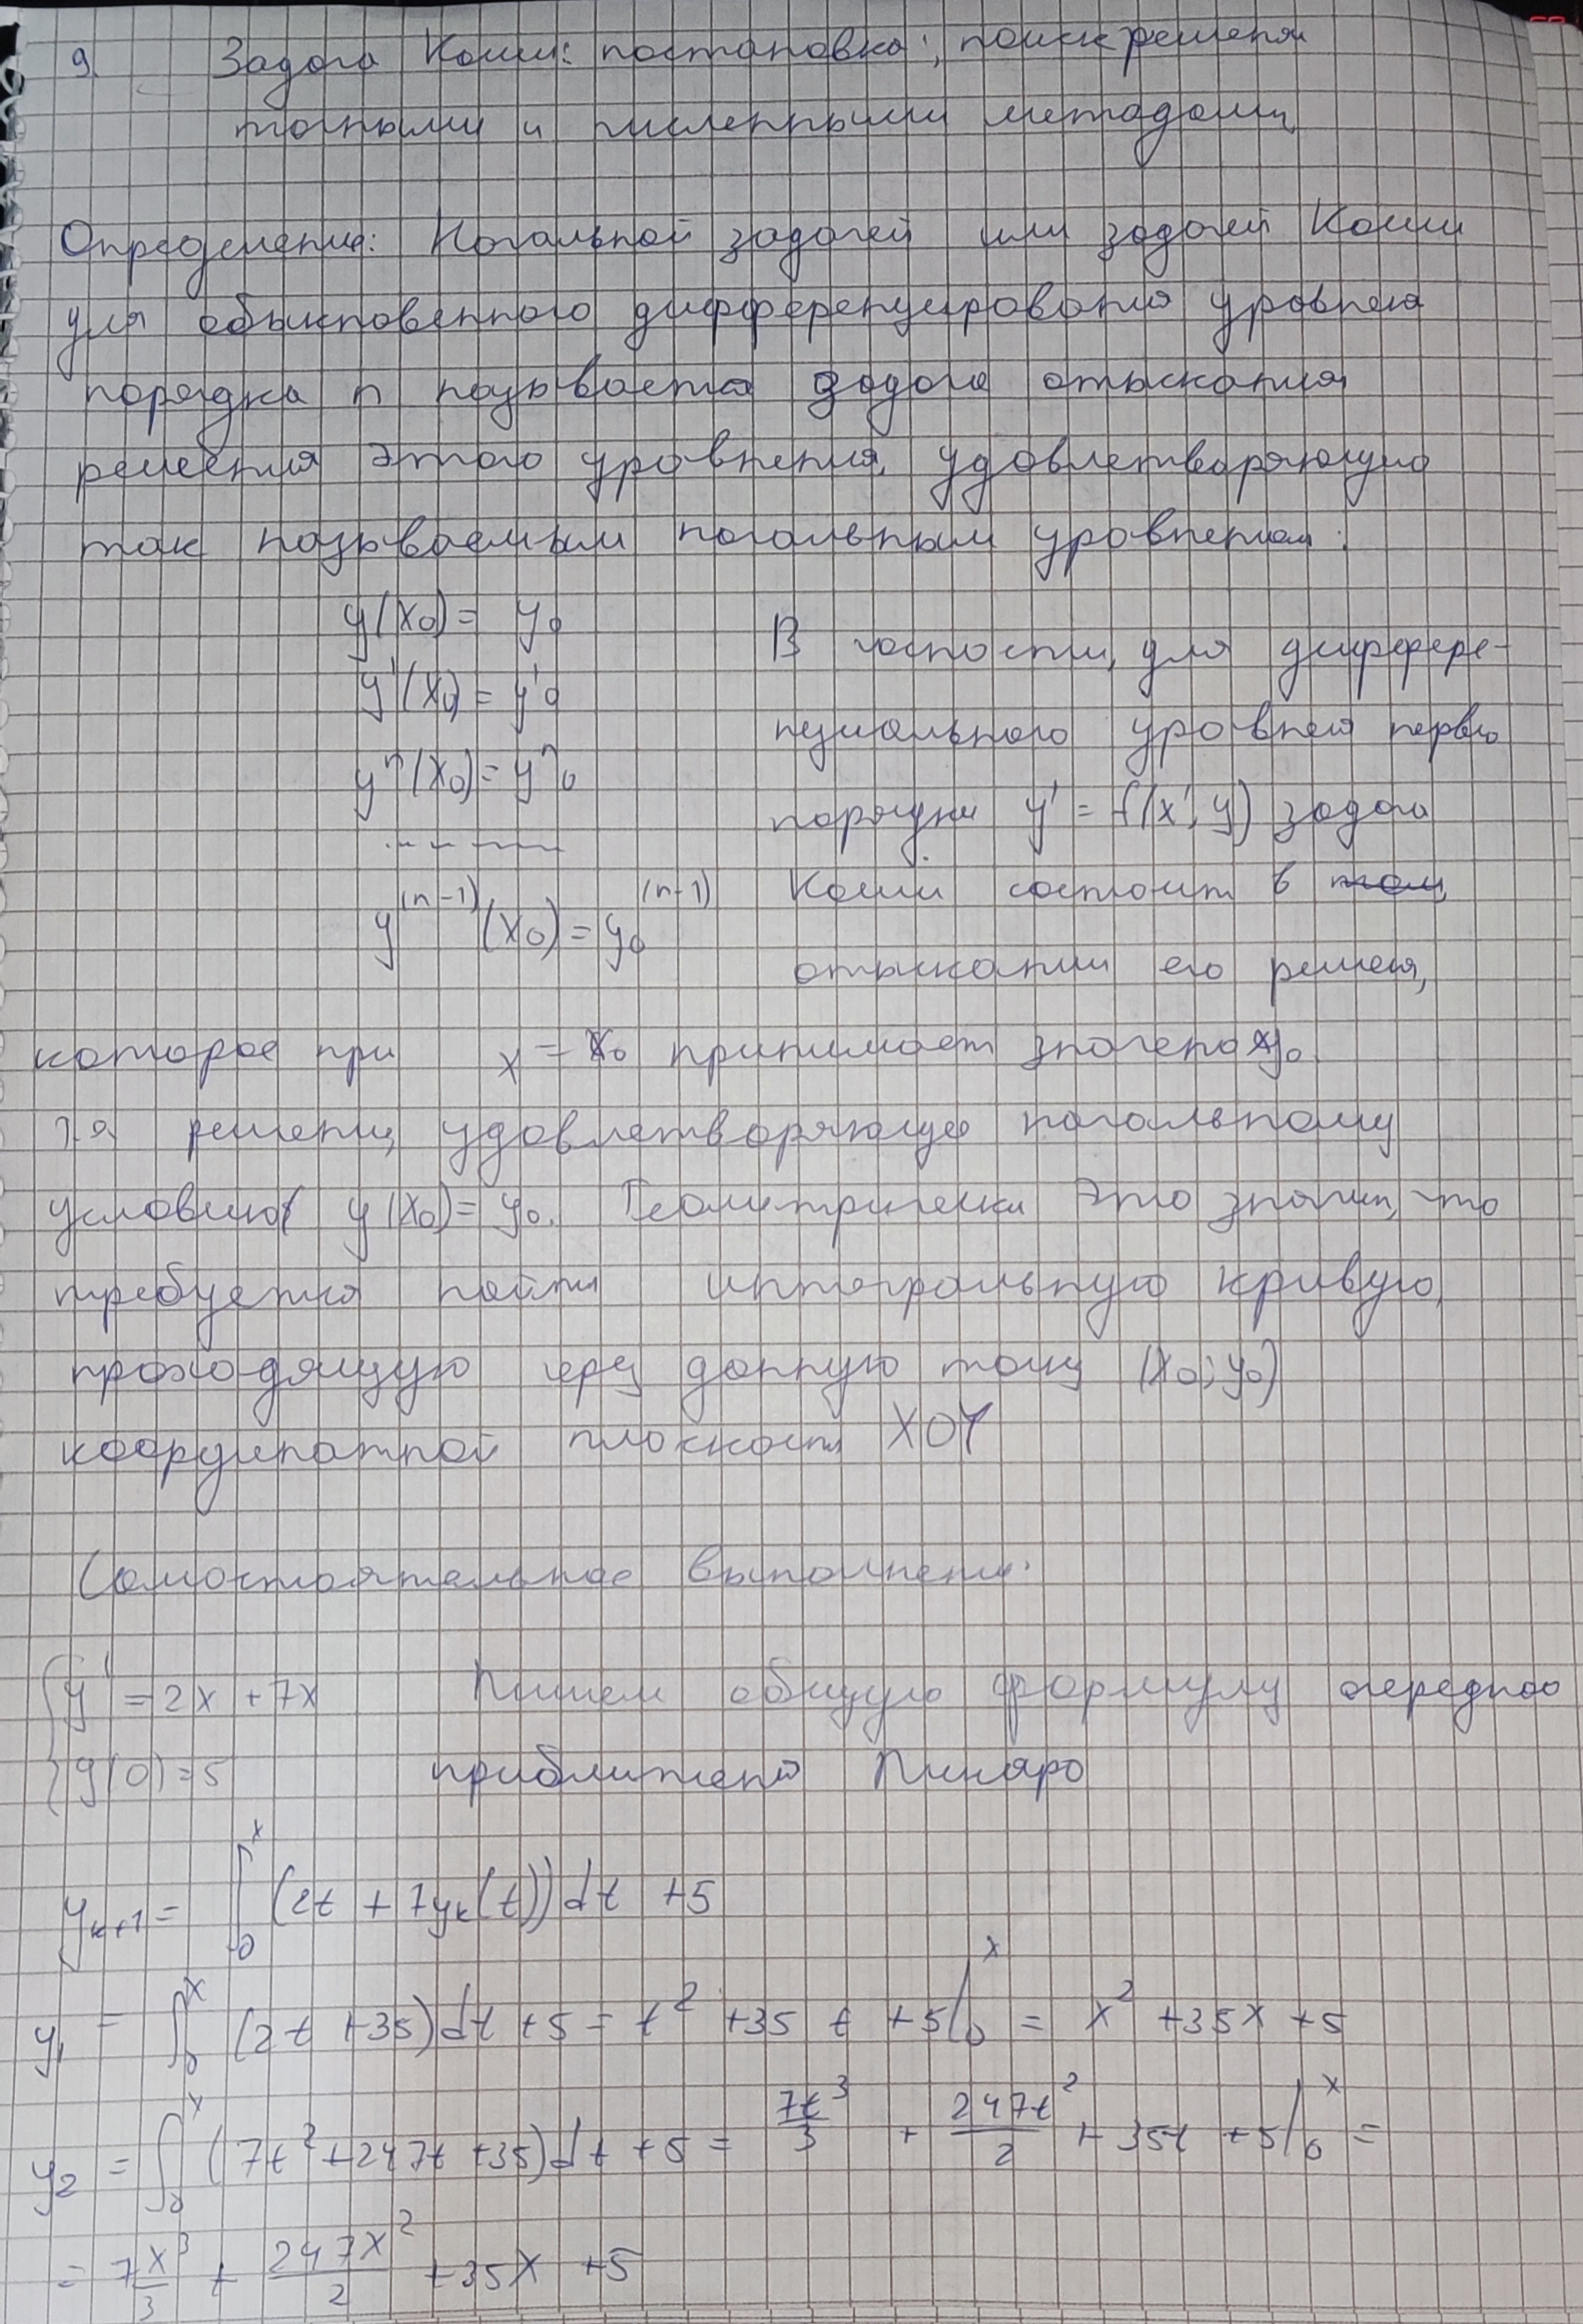 9. Задача Коши: постановка; поиск решения
точными и численными методами
Определение: Начальной задачей или задачей Коши
для обыкновенного дифференцирования уровнея
порядка n называется задача отыскания
решения этого уравнения, удовлетворяющую
так называемым начальным уравнениям:
y(x₀) = y₀
y'(x₀) = y'₀
yⁿ(x₀) = yⁿ₀
- - - - - -
y⁽ⁿ⁻¹⁾(x₀) = y₀⁽ⁿ⁻¹⁾
В частности, для диффере-
нциального уровнея перво
порядки y' = f(x', y) задача
Коши состоит в том,
отыскании его решея,
которое при x = x₀ принимает значено y₀.
т.я решени, удовлетворяющуе начальному
условию y(x₀) = y₀. Геометрически это значит, что
требуется найти интегральную кривую,
проходящую через данную точку (x₀; y₀)
координатной плоскости XOY
Самостоятельное выполнение:
{ y' = 2x + 7x
{ y(0) = 5
Пишем общую формулу очередного
приближения Пикара
yₖ₊₁ = ∫₀ˣ (2t + 7yₖ(t))dt + 5
y₁ = ∫₀ˣ (2t + 35)dt + 5 = t² + 35 t + 5/₀ˣ = x² + 35x + 5
y₂ = ∫₀ˣ (7t² + 247t + 35)dt + 5 = 7t³/3 + 247t²/2 + 35t + 5/₀ˣ =
= 7x³/3 + 247x²/2 + 35x + 5